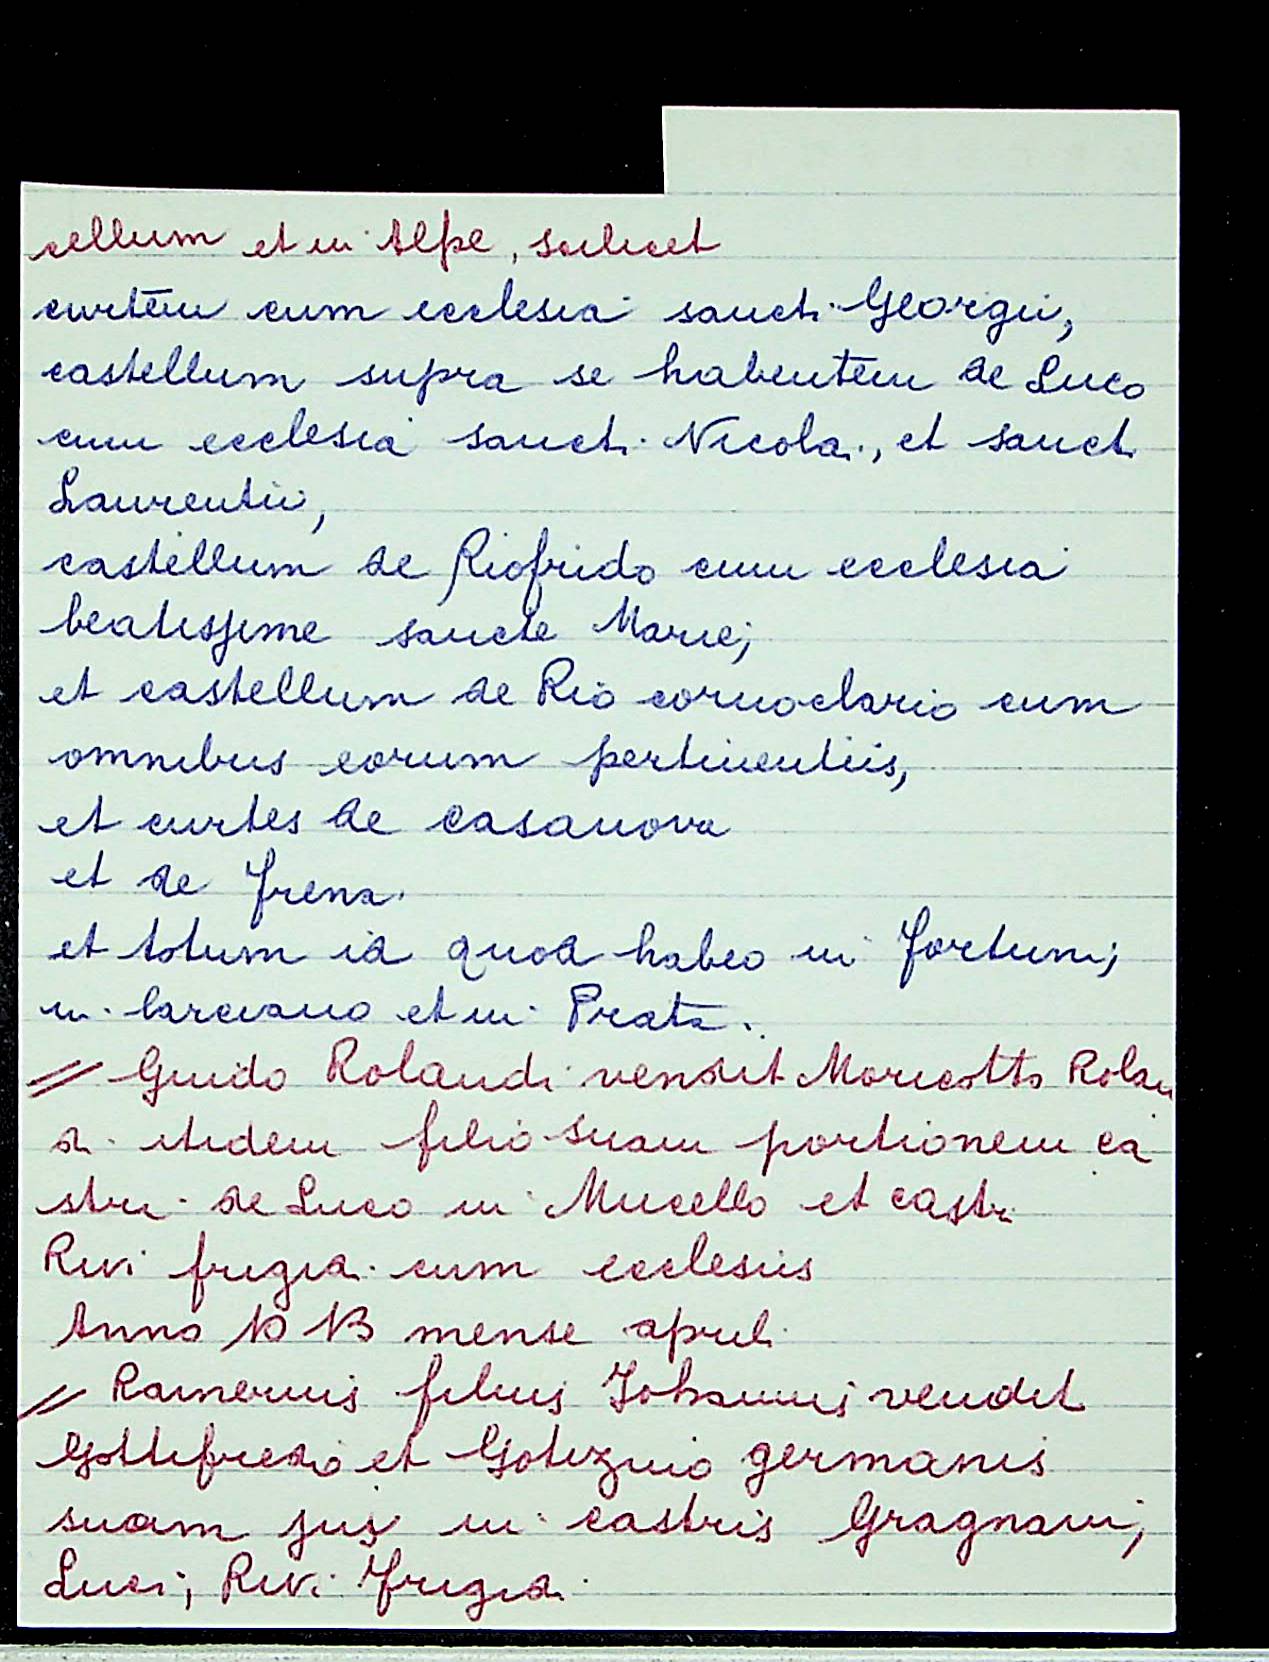 cellum et in Alpe, scilicet
curtem cum ecclesia sancti Georgii,
castellum supra se habentem de Luco
cum ecclesia sancti Nicolai, et sancti
Laurentii,
castellum de Riofrido cum ecclesia
beatissime sancte Marie;
et castellum de Rio cornoclario cum
omnibus eorum pertinentiis,
et curtes de Casanova
et de Frena
et totum id quod habeo in Fortuni;
in Carciano et in Prata.
// Guido Rolandi vendit Moricotto Rolan
di itidem filio suam portionem ca
stri de Luco in Mucello et castri
Rivi frigidi cum ecclesiis
Anno mense aprili
// Rainerius filius Johannis vendit
Gottifredo et Gotizino germanis
suam jus in castris Gragnani,
Luci, Rivi Frigidi